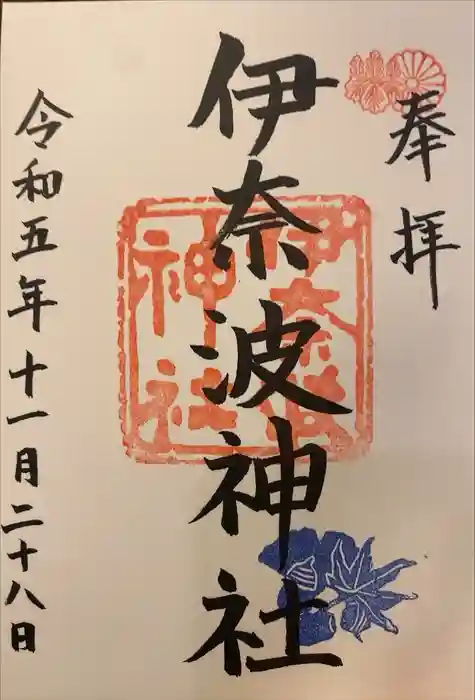 奉拝
伊奈波神社
伊奈波
神社
令和五年十一月二十八日